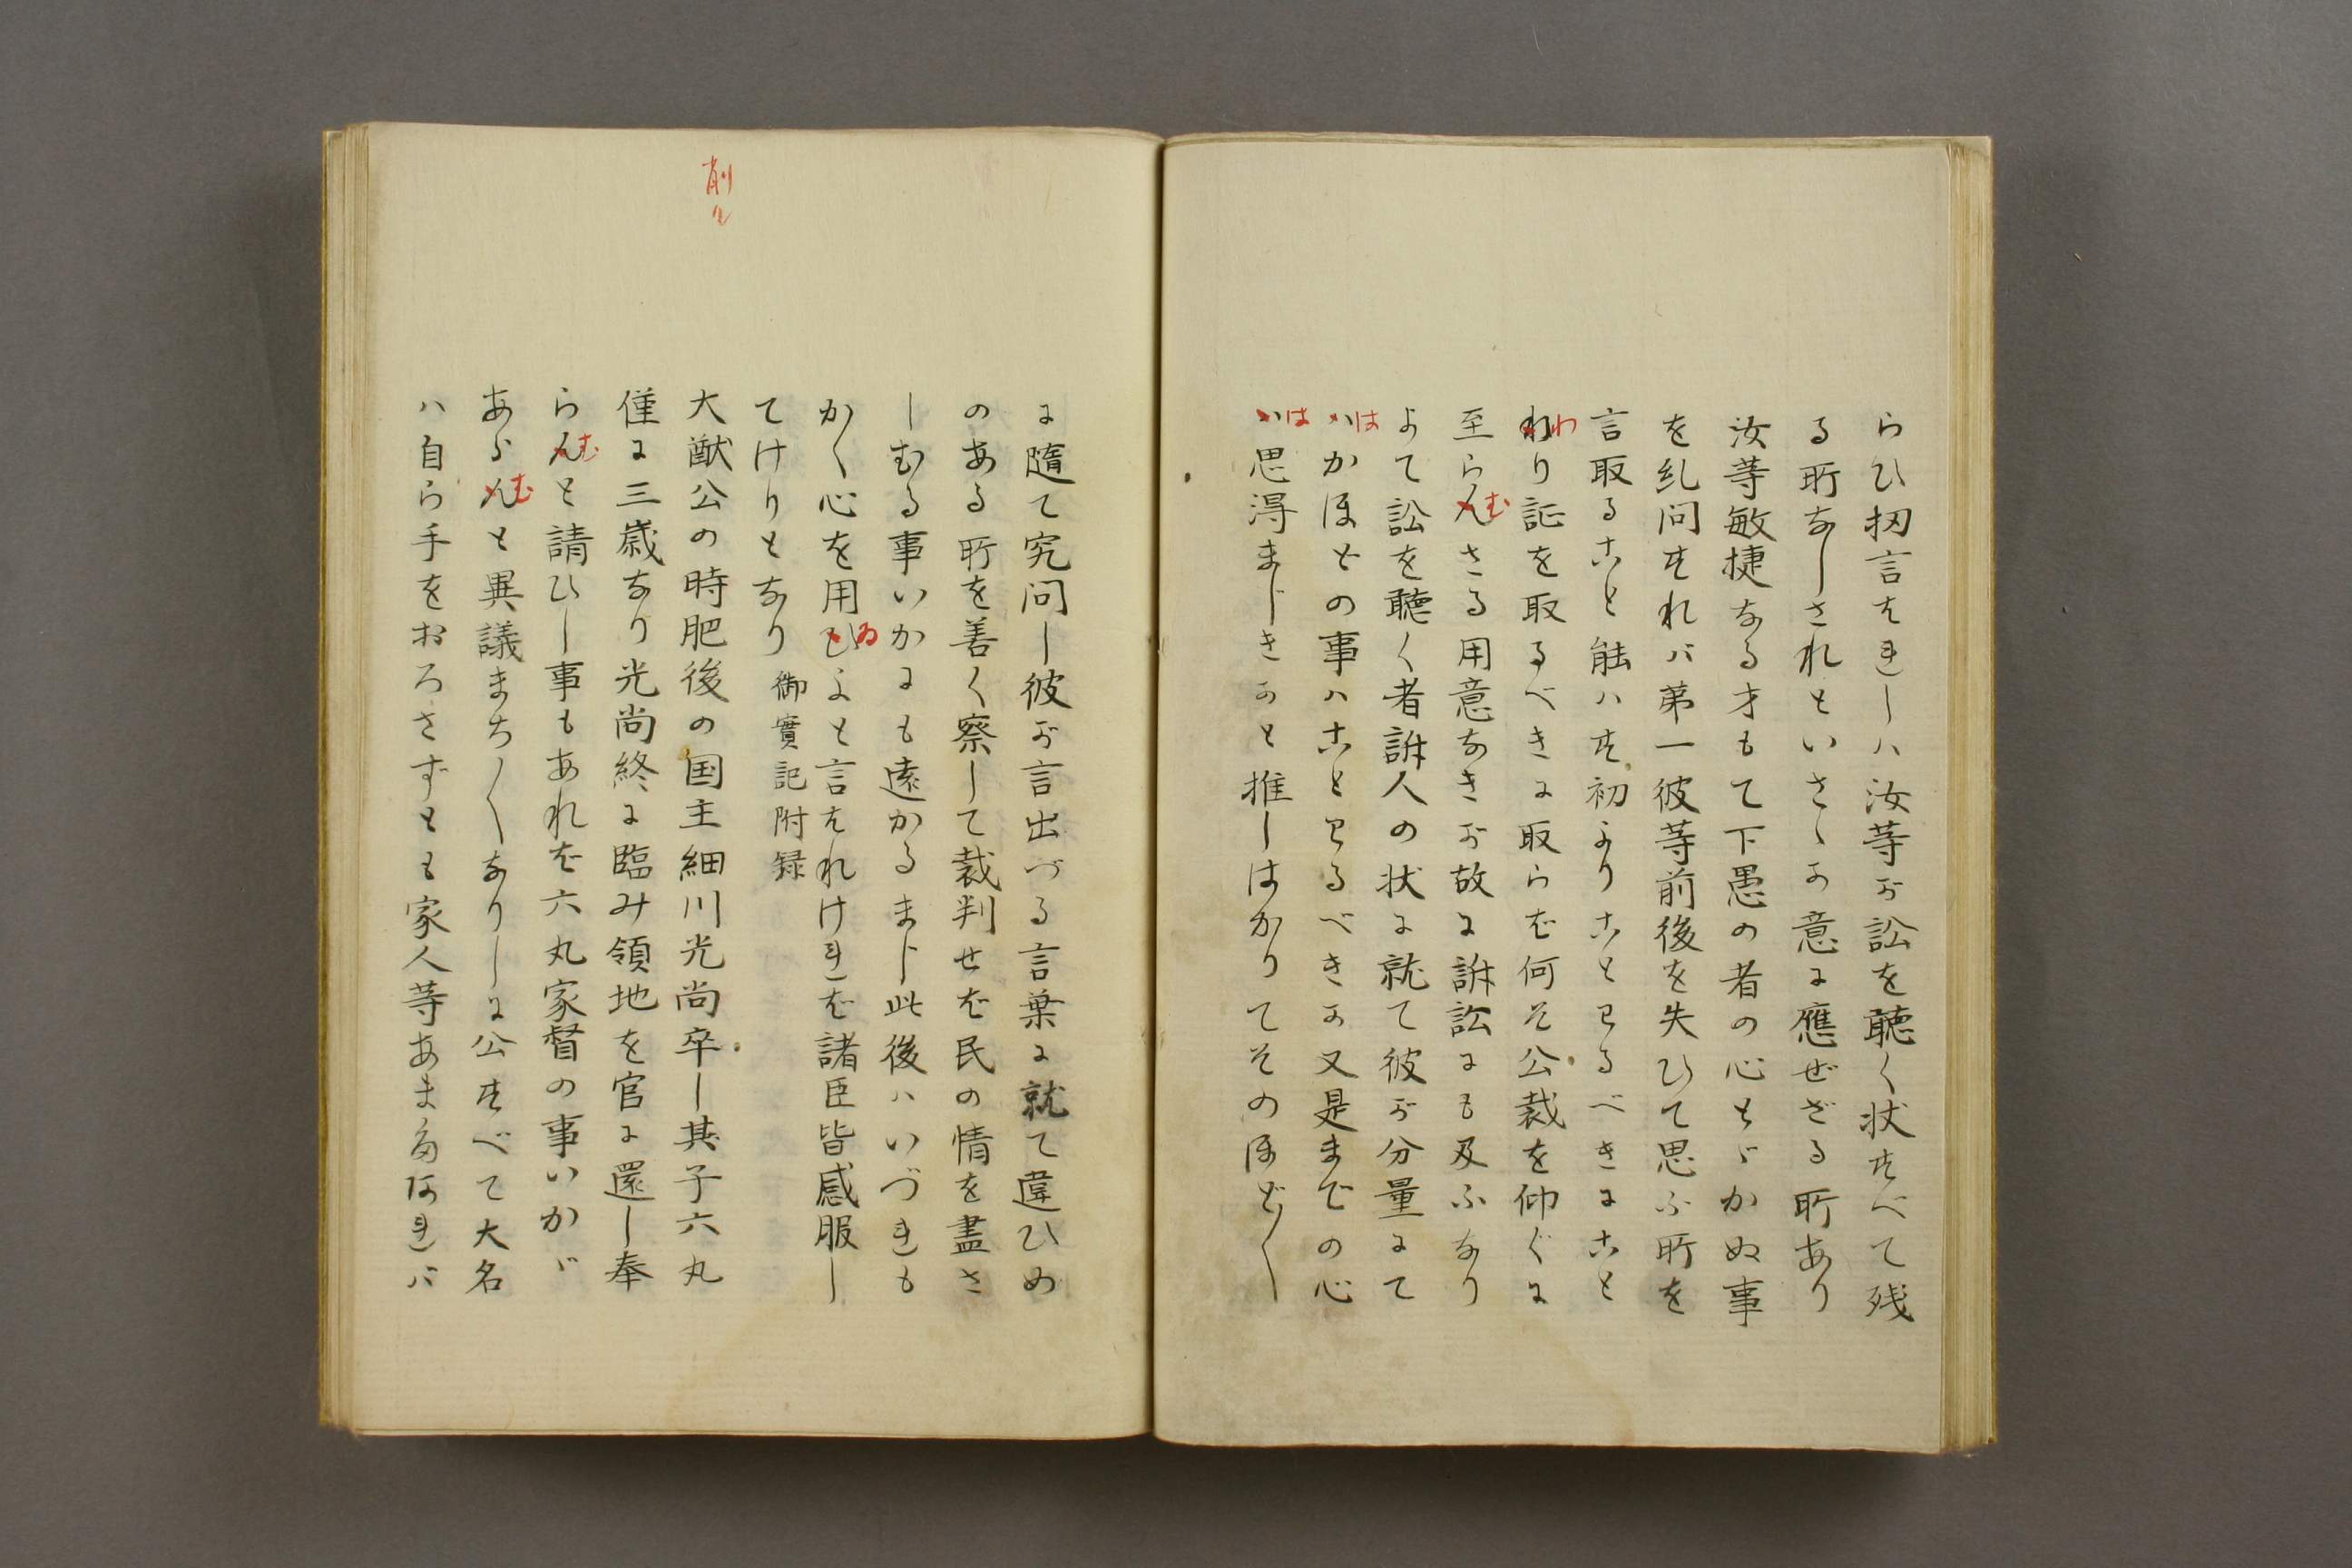 らひ扨言はれしハ汝等が訟を聴く状すべて残
る所なしされといさゝか意に應ぜざる所あり
汝等敏捷なる才もて下愚の者の心とゞかぬ事
を糺問すれバ第一彼等前後を失ひて思ふ所を
言取ること能ハす初よりことわるべきにこと
わり証を取るべきに取らば何そ公裁を仰ぐに
至らむさる用意なきが故に訴訟にも及ふなり
よて訟を聴く者訴人の状に就て彼が分量にて
はかほとの事ハことわるべきか又是までの心
は思得まじきかと推しはかりてそのほど〳〵
に隨て究問し彼が言出づる言葉に就て違ひめ
のある所を善く察して裁判せば民の情を盡さ
しむる事いかにも遠かるまじ此後ハいづれも
かく心を用ゐよと言はれければ諸臣皆感服し
てけりとなり 御實記附録
削る
大猷公の時肥後の国主細川光尚卒し其子六丸
僅に三歳なり光尚終に臨み領地を官に還し奉
らむと請ひし事もあれば六丸家督の事いかゞ
あらむと異議まち〳〵なりしに公すべて大名
ハ自ら手をおろさずとも家人等あまたあれバ